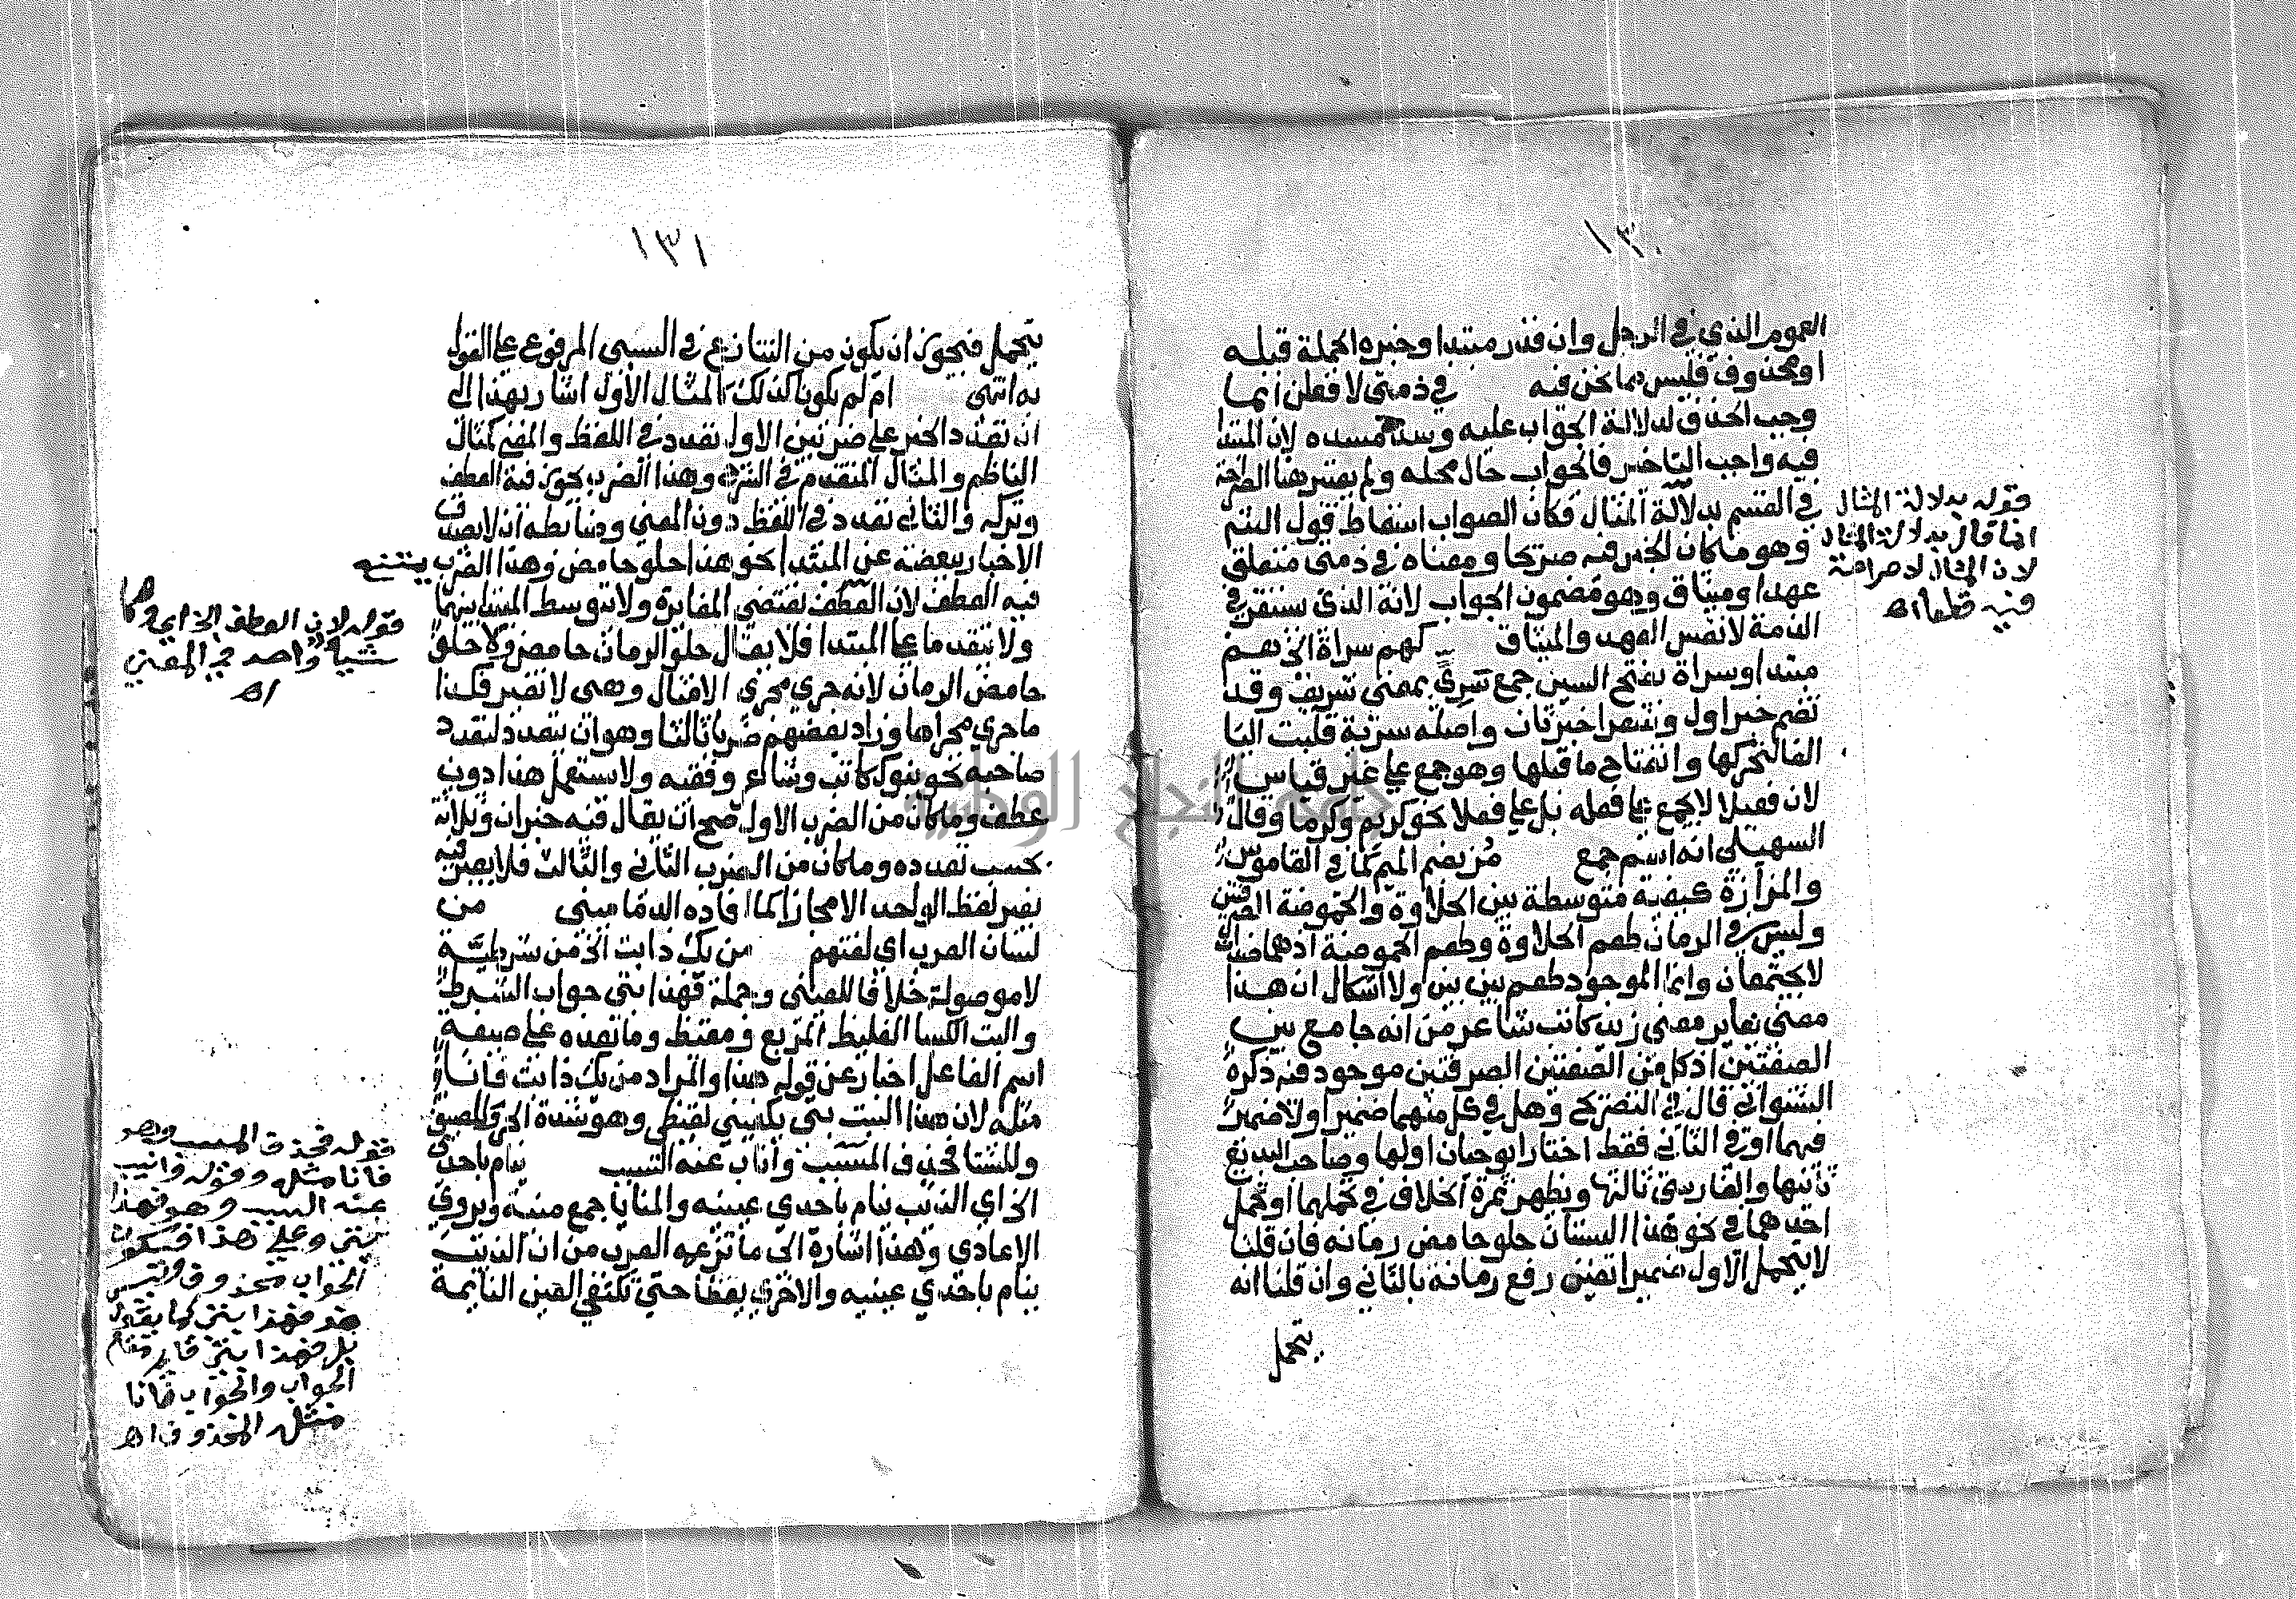 ١٣٠
العموم الذي في الرجل وان قدر مبتدا وخبره الجملة قبله
او محذوف فليس مما نحن فيه في ذمتي لا فعلن انما
وجب الحذف لدلالة الجواب عليه وسده مسده لان المبتدا
فيه واجب التاخير فالجواب حال محله ولم يعتبر هنا الصراحة
في القسم بدلالة المثال فكان الصواب اسقاط قول الشم
وهو ما كان الخبر فيه صريحا ومعناه في ذمتي متعلق
عهد او ميثاق وهو مضمون الجواب لانه الذي يستقر في
الذمة لا نفس العهد والميثاق كهم سراة الخ هم
مبتدا وسراة بفتح السين جمع سري بمعنى شريف وقد
تضم خبر اول وشعرا خبر ثان واصله سرية قلبت اليا
الفا لتحركها وانفتاح ما قبلها وهو جمع على غير قياس
لان فعيلا لا يجمع على فعله بل على فعلا نحو كريم وكرما وقال
السهيلى انه اسم جمع مز بضم الميم كما في القاموس
والمزازة كيفية متوسطة بين الحلاوة والحموضة الصرفتين
وليس في الرمان طعم الحلاوة وطعم الحموضة اذ هما ضدان
لا يجتمعان وانما الموجود طعم بين بين ولا اشكال ان هذا
معنى يغاير معنى زيد كاتب شاعر من انه جامع بين
الصفتين اذ كل من الصفتين الصرفتين موجود فيه ذكره
الشنواني قال في التصريح وهل في كل منهما ضمير او لا ضمير
فيهما او في الثاني فقط اختار ابو حيان اولها وصاحب البديع
ثانيها والفارسي ثالثها ويظهر ثمرة الخلاف في تحملهما او تحمل
احدهما في نحو هذا البستان حلو حامض رمانه فان قلنا
لا يتحمل الاول ضميرا تعين رفع رمانه بالثاني وان قلنا انه
يتحمل
قوله بدلالة المثال
انما قال بدلالة المثال
لان المثال لا صراحة
فيه قطعا اه
١٣١
يتحمل فيجوز ان يكون من التنازع في السببي المرفوع على القول
به انتهى ام لم يكونا كذلك المثال الاول اشار بهذا الى
ان تعدد الخبر على ضربين الاول تعدد في اللفظ والمعنى كمثال
الناظم والمثال المتقدم في الشرح وهذا الضرب يجوز فيه العطف
وتركه والثاني تعدد في اللفظ دون المعنى وضابطه ان لا يصدق
الاخبار ببعضه عن المبتدا نحو هذا حلو حامض وهذا الضرب يمتنع
فيه العطف لان العطف يقتضي المغايرة ولا يتوسط المبتدا بينهما
ولا يتقدما على المبتدا فلا يقال حلو الرمان حامض ولا حلو
حامض الرمان لانه جرى مجرى الامثال وهى لا تغير فكذا
ما جرى مجراها وزاد بعضهم ضربا ثالثا وهو ان يتعدد لتعدد
صاحبه نحو بنوك كاتب وشاعر وفقيه ولا يستعمل هذا دون
عطف وما كان من الضرب الاول صح ان يقال فيه خبران وثلاثة
بحسب تعدده وما كان من الضرب الثاني والثالث فلا يعبر فيه
بغير لفظ الواحد الا مجازا كما افاده الدماميني من
لسان العرب اي لغتهم من يك ذا بت الخ من شرطية
لا موصولة خلافا للعيني وجملة فهذا بتي جواب الشرط
والبت الكسا الغليظ المربع ومقيظ وما بعده على صيغة
اسم الفاعل اخبار عن قوله هذا والمراد من يك ذا بت فانا
مثله لان هذا البت بتي يكفيني لقيظى وهو شدة الحر وللصيف
وللشتا فحذف المسبب واناب عنه السبب ينام باحدى
الخ اي الذئب ينام باحدى عينيه والمنايا جمع منية ويروى
الاعادى وهذا اشارة الى ما تزعمه العرب من ان الذئب
ينام باحدي عينيه والاخرى يقظا حتى تكتفي العين النائمة
قوله لان العطف الخ اي وهما
شيأ واحد في المعنى
اه
قوله فحذف المسبب وهو
فانا مثله وقوله وانيب
عنه السبب وهو فهذا
بتي وعلى هذا فيكون
الجواب محذوفا وليس
بل فهذا بتي قايم مقام
الجواب والجواب فانا
مثله المحذوف اه